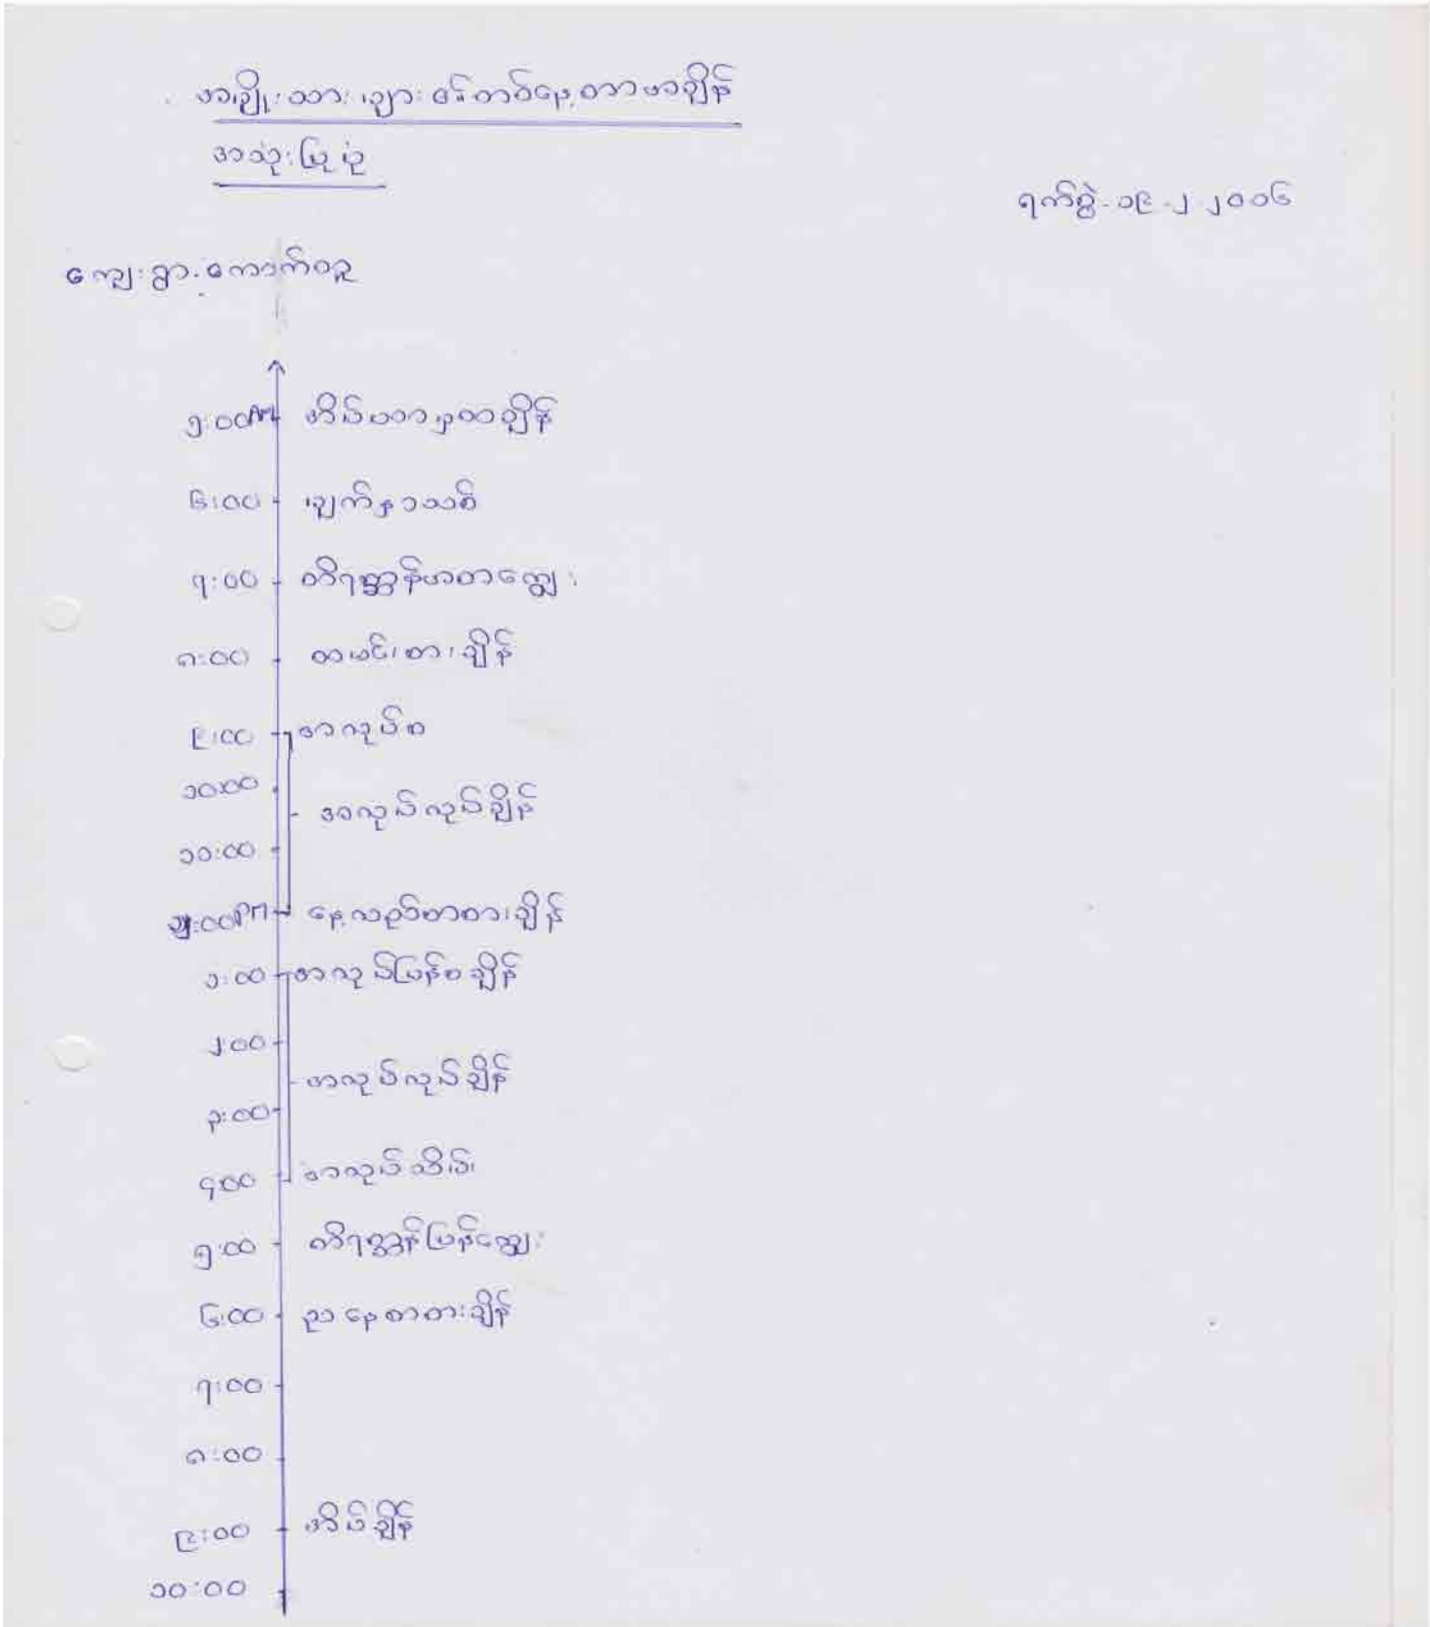 အမျိုးသားများ၏တစ်နေ့တာအချိန်
အသုံးပြုပုံ
ရက်စွဲ-၁၉-၂-၂၀၀၆
ကျေးရွာ-ကောက်
၅:၀၀AM အိပ်ယာမှထချိန်
၆:၀၀ မျက်နှာသစ်
၇:၀၀ တိရစ္ဆာန်အစာကျွေး
၈:၀၀ ထမင်းစားချိန်
၉:၀၀ အလုပ်စ
၁၀:၀၀
အလုပ်လုပ်ချိန်
၁၁:၀၀
:၀၀PM နေ့လည်စာစားချိန်
၁:၀၀ အလုပ်ပြန်စချိန်
၂:၀၀
အလုပ်လုပ်ချိန်
၃:၀၀
၄:၀၀ အလုပ်သိမ်း
၅:၀၀ တိရစ္ဆာန်ပြန်ကျွေး
၆:၀၀ ညနေစာစားချိန်
၇:၀၀
၈:၀၀
၉:၀၀ အိပ်ချိန်
၁၀:၀၀